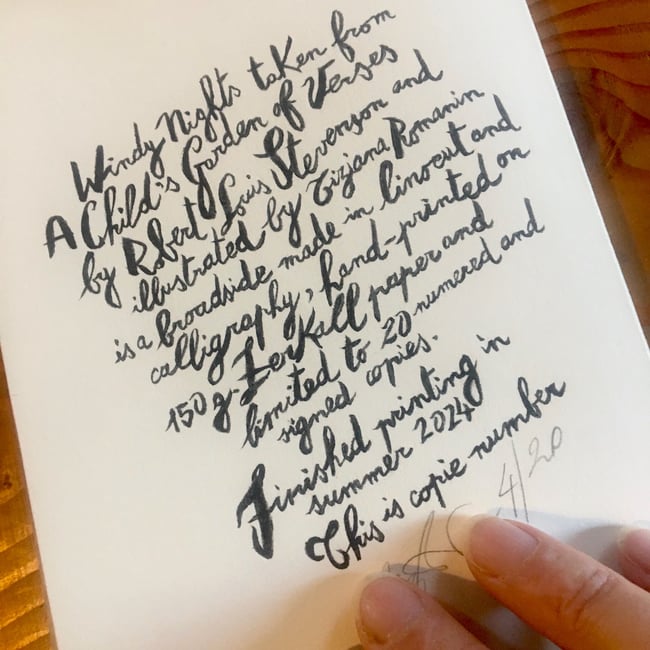 Windy Nights taken from
A Child's Garden of Verses
by Robert Louis Stevenson and
illustrated by Tiziana Romanin
is a broadside made in linocut and
calligraphy, hand-printed on
150 g. Zerkall paper and
limited to 20 numered and
signed copies.
Finished printing in
summer 2024
This is copie number
4/20